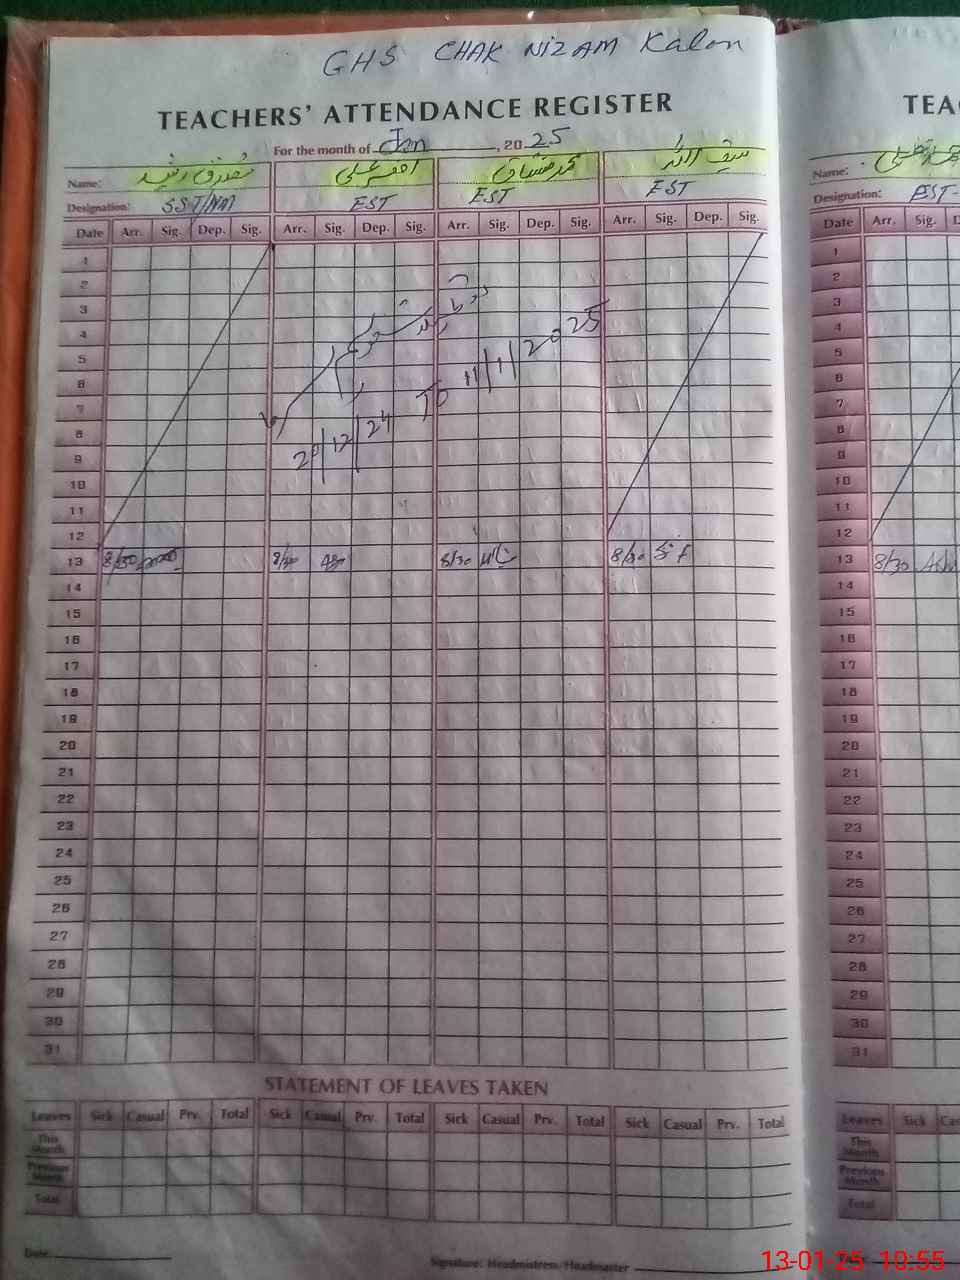 GHS CHAK NIZAM Kalan
TEACHERS' ATTENDANCE REGISTER
For the month of Jan, 2025
Name:
Designation: SST/HM EST EST EST
Date Arr. Sig. Dep. Sig. Arr. Sig. Dep. Sig. Arr. Sig. Dep. Sig. Arr. Sig. Dep. Sig.
1
2
3
4
5
6
7
8
9
10
11
12
20/12/24 To 11/1/2025
13 8/30 8/30 8/30 8/30
14
15
16
17
18
19
20
21
22
23
24
25
26
27
28
29
30
31
STATEMENT OF LEAVES TAKEN
Leaves Sick Casual Prv. Total Sick Casual Prv. Total Sick Casual Prv. Total Sick Casual Prv. Total
This Month
Previous Month
Total
Date:
Signature: Headmistress/Headmaster
TEA
Name:
Designation: PST-
Date Arr. Sig. D
1
2
3
4
5
6
7
8
9
10
11
12
13 8/30
14
15
16
17
18
19
20
21
22
23
24
25
26
27
28
29
30
31
Leaves Sick Cas
This Month
Previous Month
Total
13-01-25 10:55